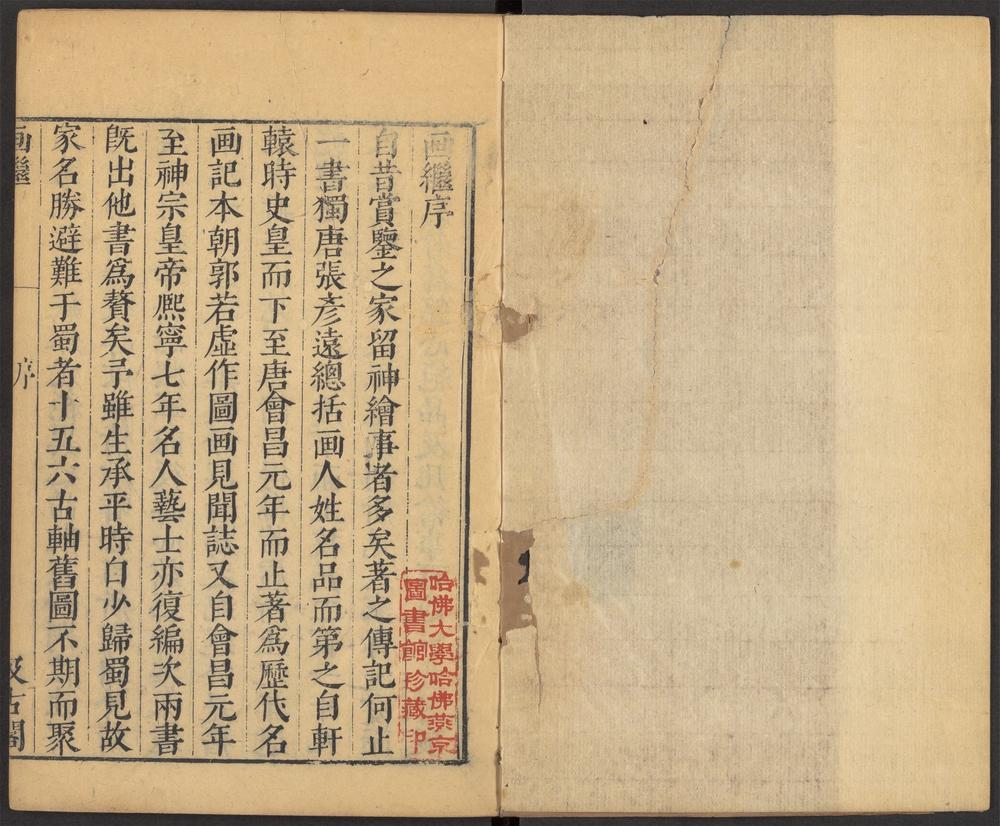 画繼序
自昔賞鑒之家留神繪事者多矣著之傳記何止
一書獨唐張彦遠總括画人姓名品而第之自軒
轅時史皇而下至唐會昌元年而止著爲歷代名
画記本朝郭若虛作圖画見聞誌又自會昌元年
至神宗皇帝熈寧七年名人藝士亦復編次兩書
旣出他書爲贅矣予雖生承平時自少歸蜀見故
家名勝避難于蜀者十五六古軸舊圖不期而聚
画繼
序
汲古閣
哈佛大學哈佛燕京
圖書館珍藏印